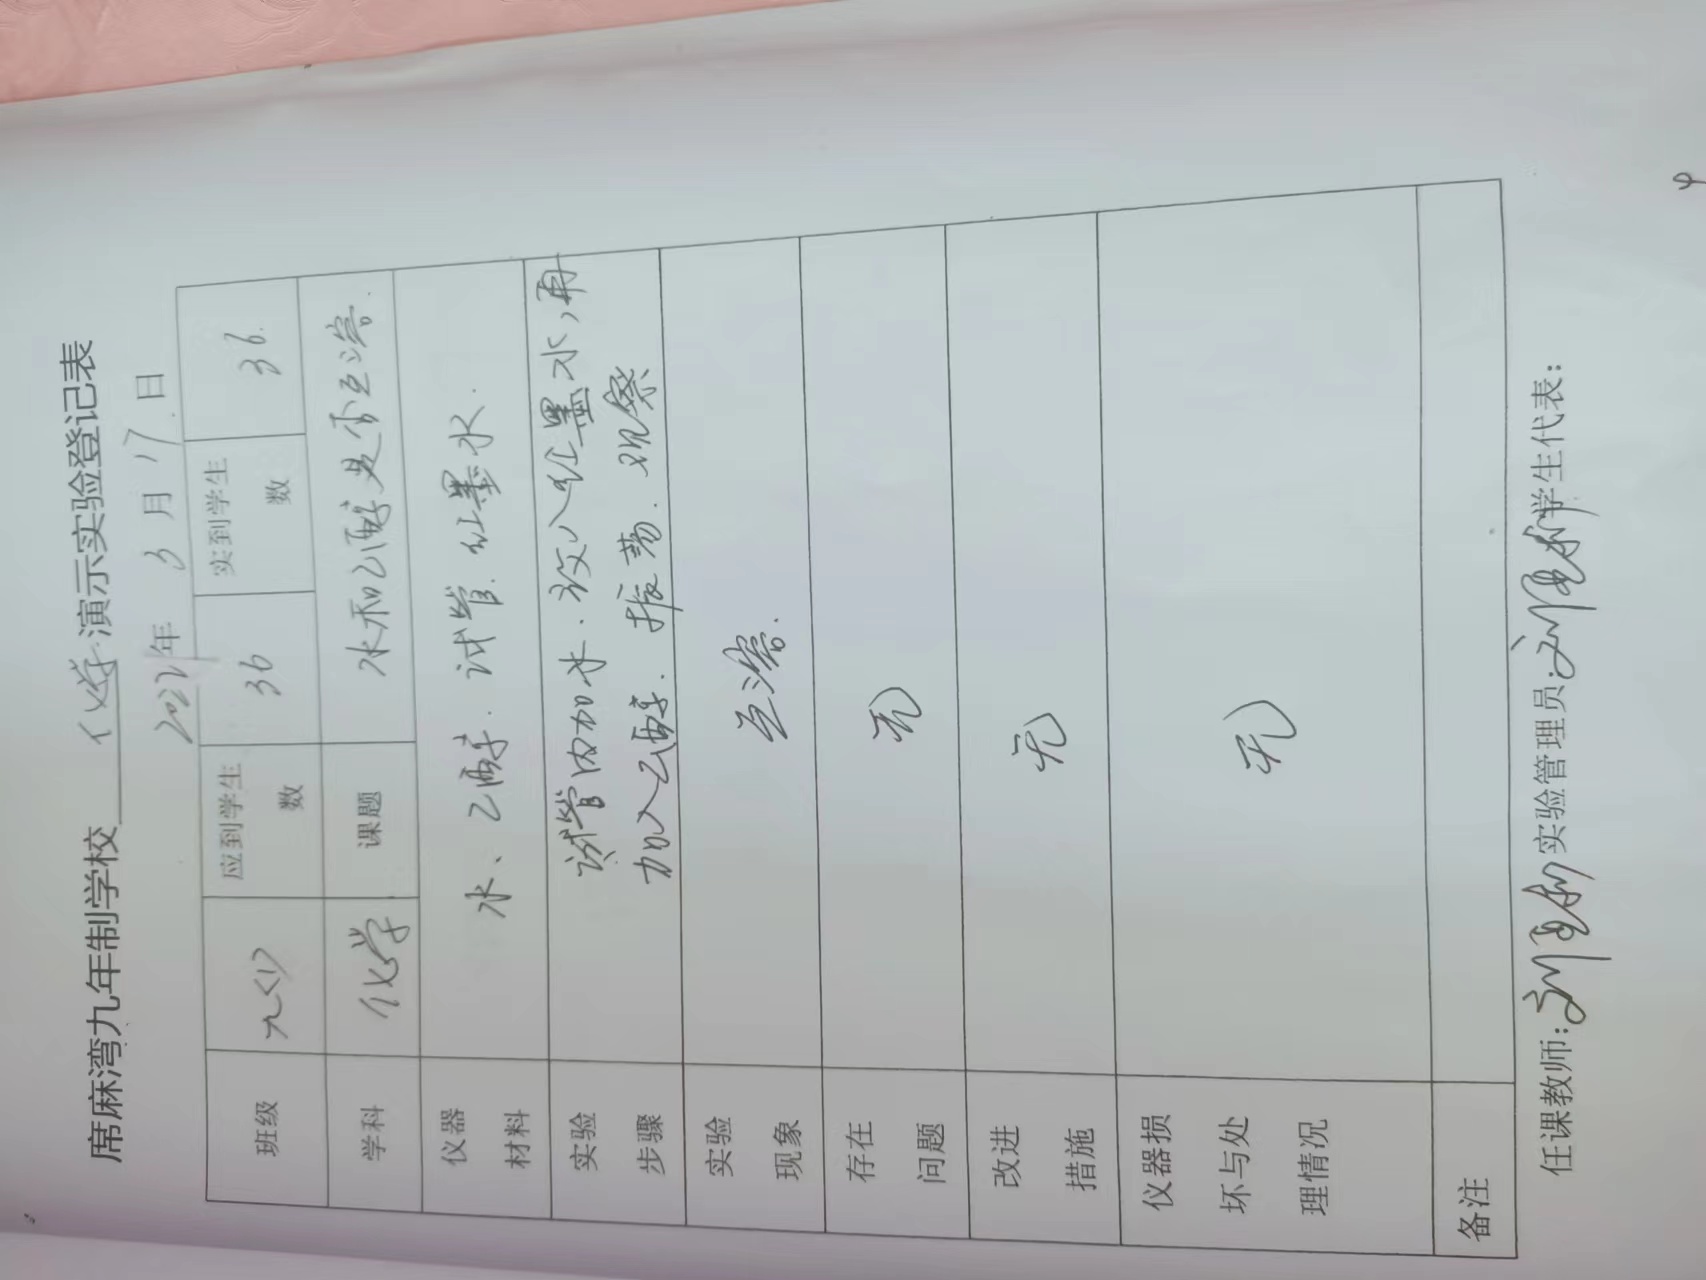 席麻湾九年制学校 化学 演示实验登记表
年 3 月 17 日
班级 九<1> 应到学生数 36 实到学生数 36.
学科 化学 课题 水和乙醇是否互溶.
仪器材料 水、乙醇. 试管. 红墨水.
实验步骤 试管内加水. 放入红墨水,再
加入乙醇. 振荡. 观察
实验现象 互溶.
存在问题 无
改进措施 无
仪器损坏与处理情况 无
备注
任课教师: 实验管理员: 学生代表: